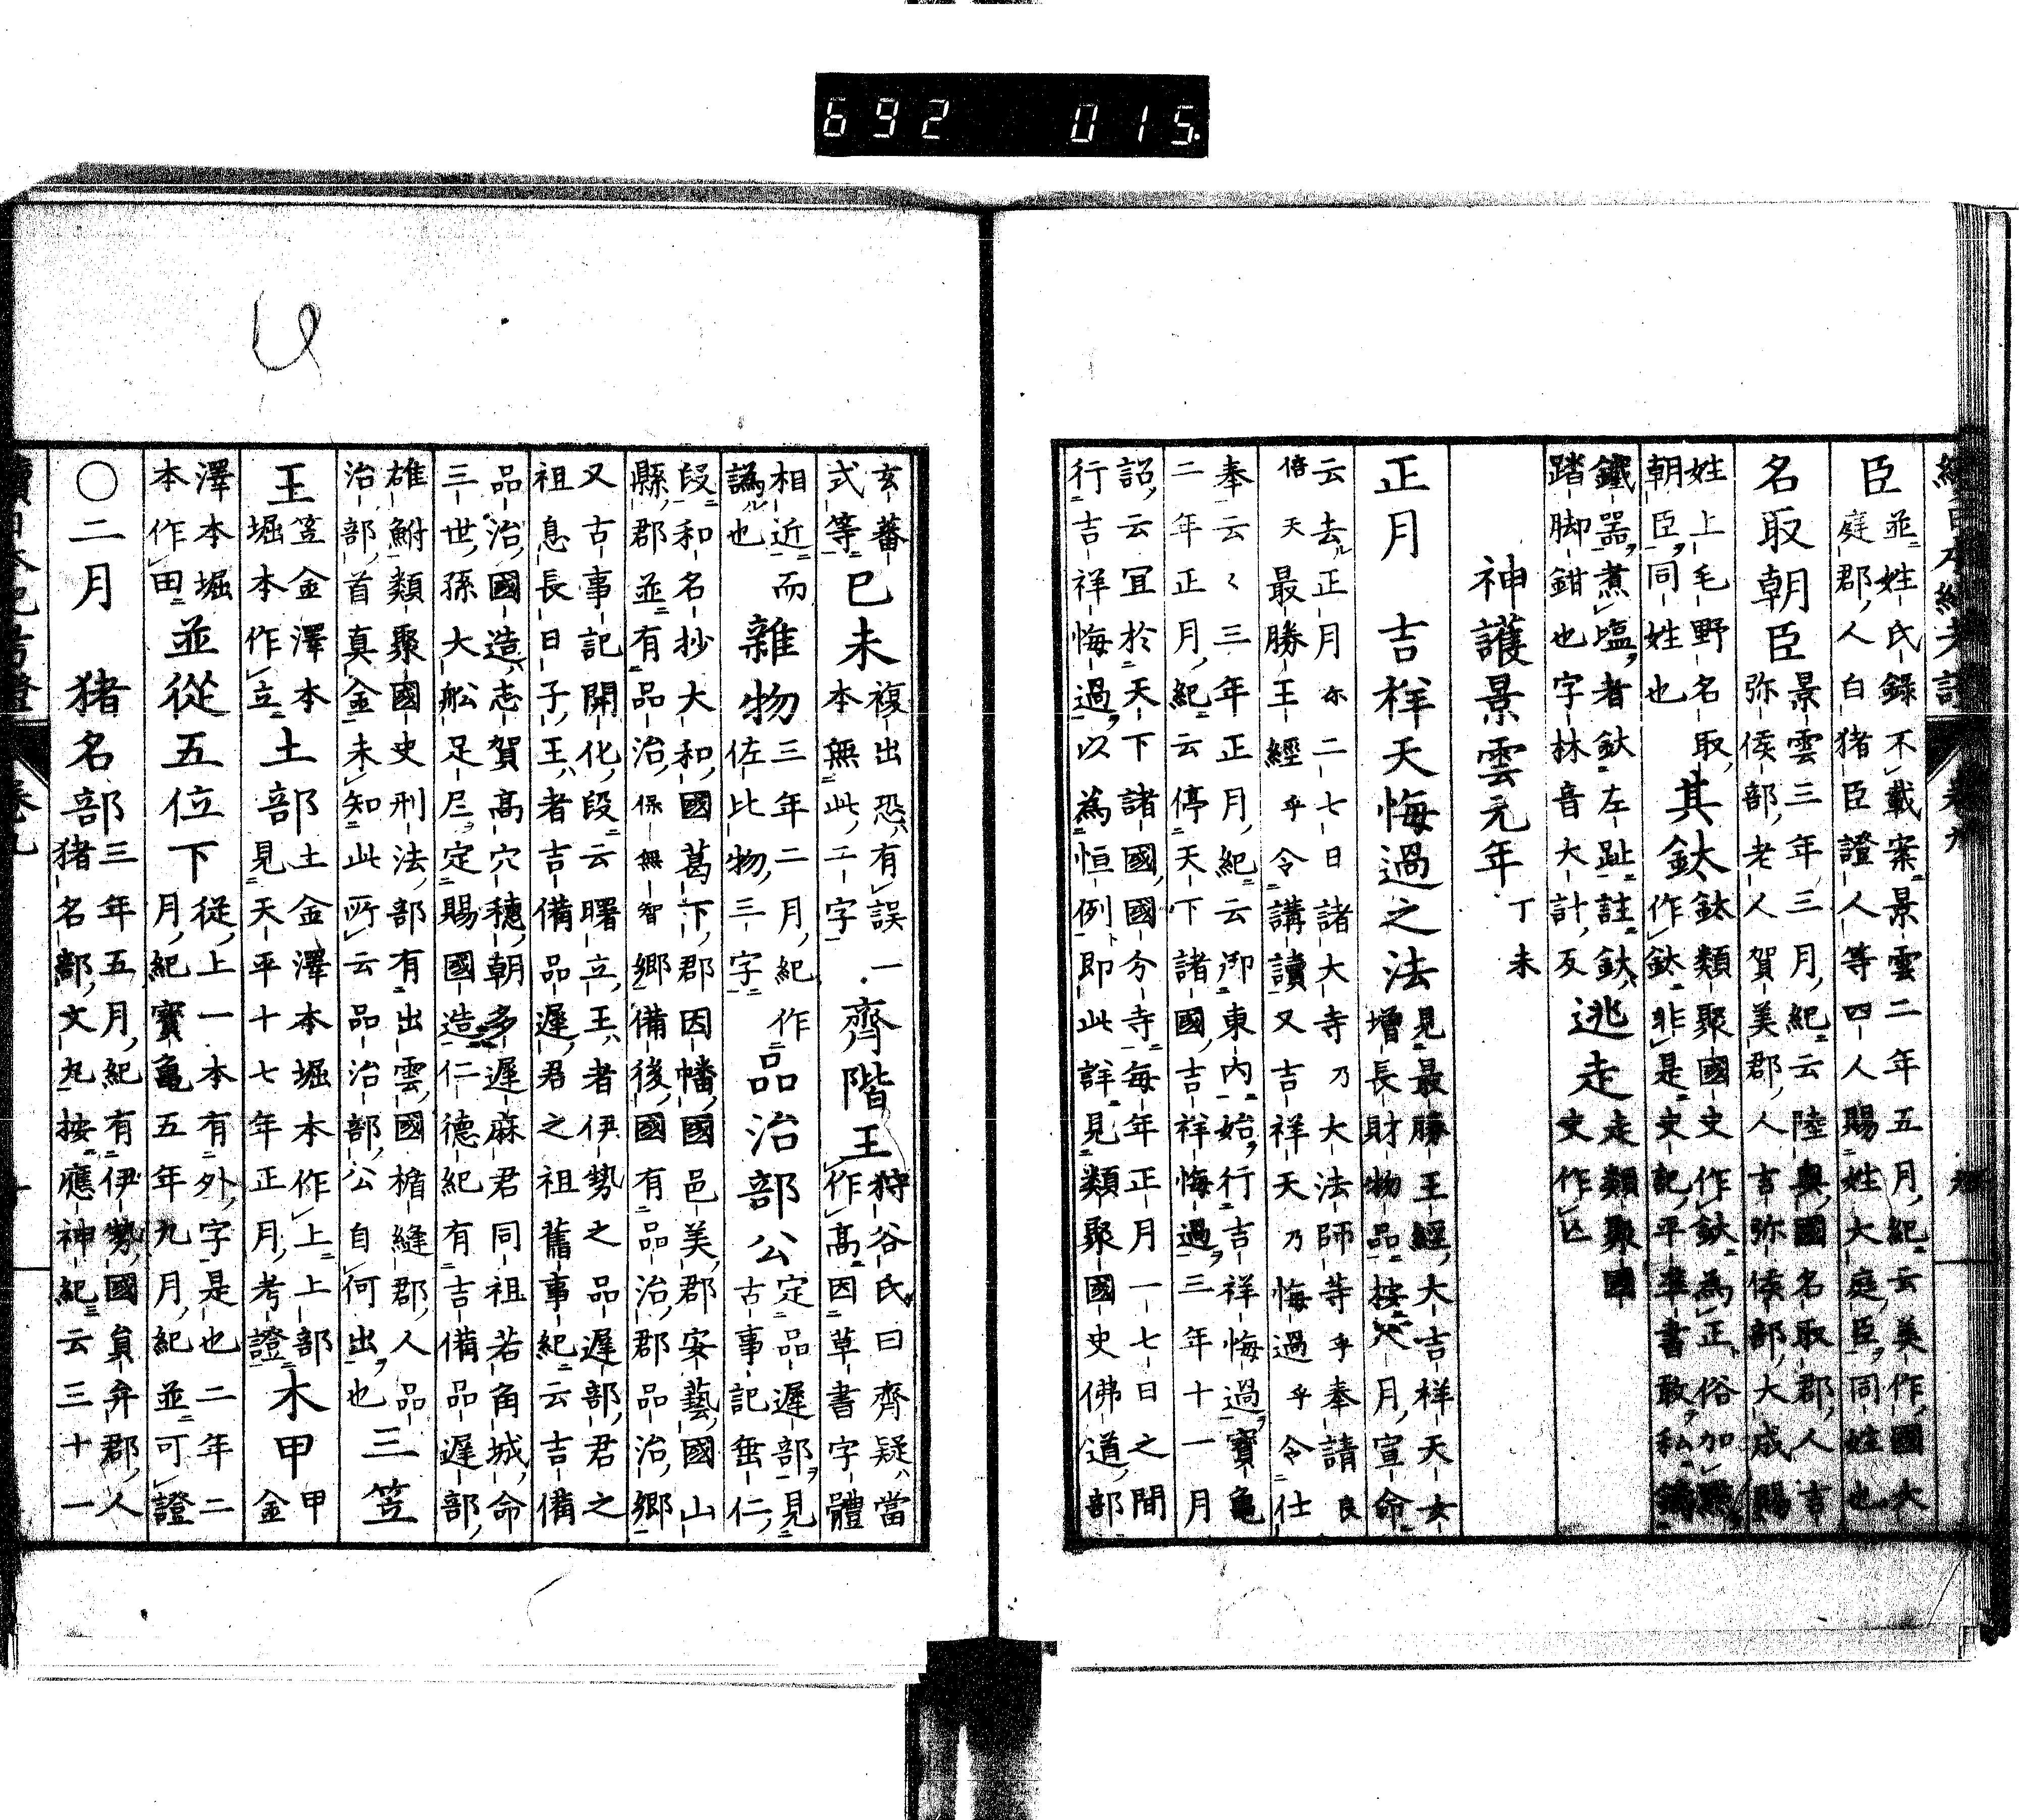 692 015
續日本紀考證 卷九 九
臣 並姓氏錄不載案景雲二年五月紀云美作國大
庭郡人白猪臣證人等四人賜姓大庭臣同姓也
名取朝臣 景雲三年三月紀云陸奥國名取郡人吉
弥侯部老人賀美郡人吉弥侯部大成賜
姓上毛野名取
朝臣同姓也
其釱 釱類聚國史文作釱為正俗加點
作釱非是史記平準書敢私鑄
鐵器煮塩者釱左趾註釱
踏脚鉗也字林音大計反
逃走 走類聚國
史作亡
神護景雲元年 丁未
正月 吉祥天悔過之法 見最勝王經大吉祥天女
增長財物品按八月宣命
云去正月尓二七日諸大寺乃大法師等乎奉請良
倍天最勝王經乎令講讀又吉祥天乃悔過乎令仕
奉云々三年正月紀云御東内始行吉祥悔過寶亀
二年正月紀云停天下諸國吉祥悔過三年十一月
詔云冝於天下諸國國分寺毎年正月一七日之間
行吉祥悔過以為恒例即此詳見類聚國史佛道部
玄蕃
式等
已未 複出恐有誤一
本無此二字
齊階王 狩谷氏曰齊疑當
作髙因草書字體
相近而
譌也
雜物 三年二月紀作
佐比物三字
品治部公 定品遅部見
古事記垂仁
段和名抄大和國葛下郡因幡國邑美郡安藝國山
縣郡並有品治保無智郷備後國有品治郡品治郷
又古事記開化段云曙立王者伊勢之品遅部君之
祖息長日子王者吉備品遅君之祖舊事紀云吉備
品治國造志賀髙穴穂朝多遅麻君同祖若角城命
三世孫大舩足尼定賜國造仁德紀有吉備品遅部
雄鮒類聚國史刑法部有出雲國楯縫郡人品
治部首真金未知此所云品治部公自何出也
三笠
王 笠金澤本
堀本作立
土部 土金澤本堀本作上上部
見天平十七年正月考證
木甲 甲
金
澤本堀
本作田
並從五位下 從上一本有外字是也二年二
月紀寶亀五年九月紀並可證
○二月 猪名部 三年五月紀有伊勢國員弁郡人
猪名部文丸按應神紀云三十一
續日本紀考證 卷九 十